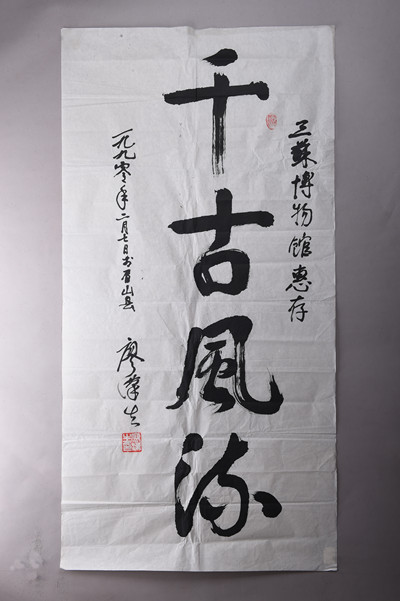 三蘇博物館惠存
千古風流
一九九零年二月七日于眉山县
廖漢生